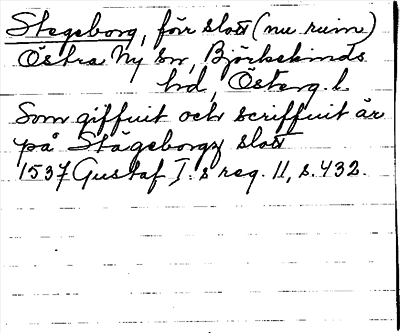 Stegeborg, förr slott (nu ruin)
Östra Ny sn, Björkekinds
hd, Österg. l.
Som giffuit och scriffuit är
på Stägeborgz slott
1537 Gustaf I:s reg. 11, s. 432.